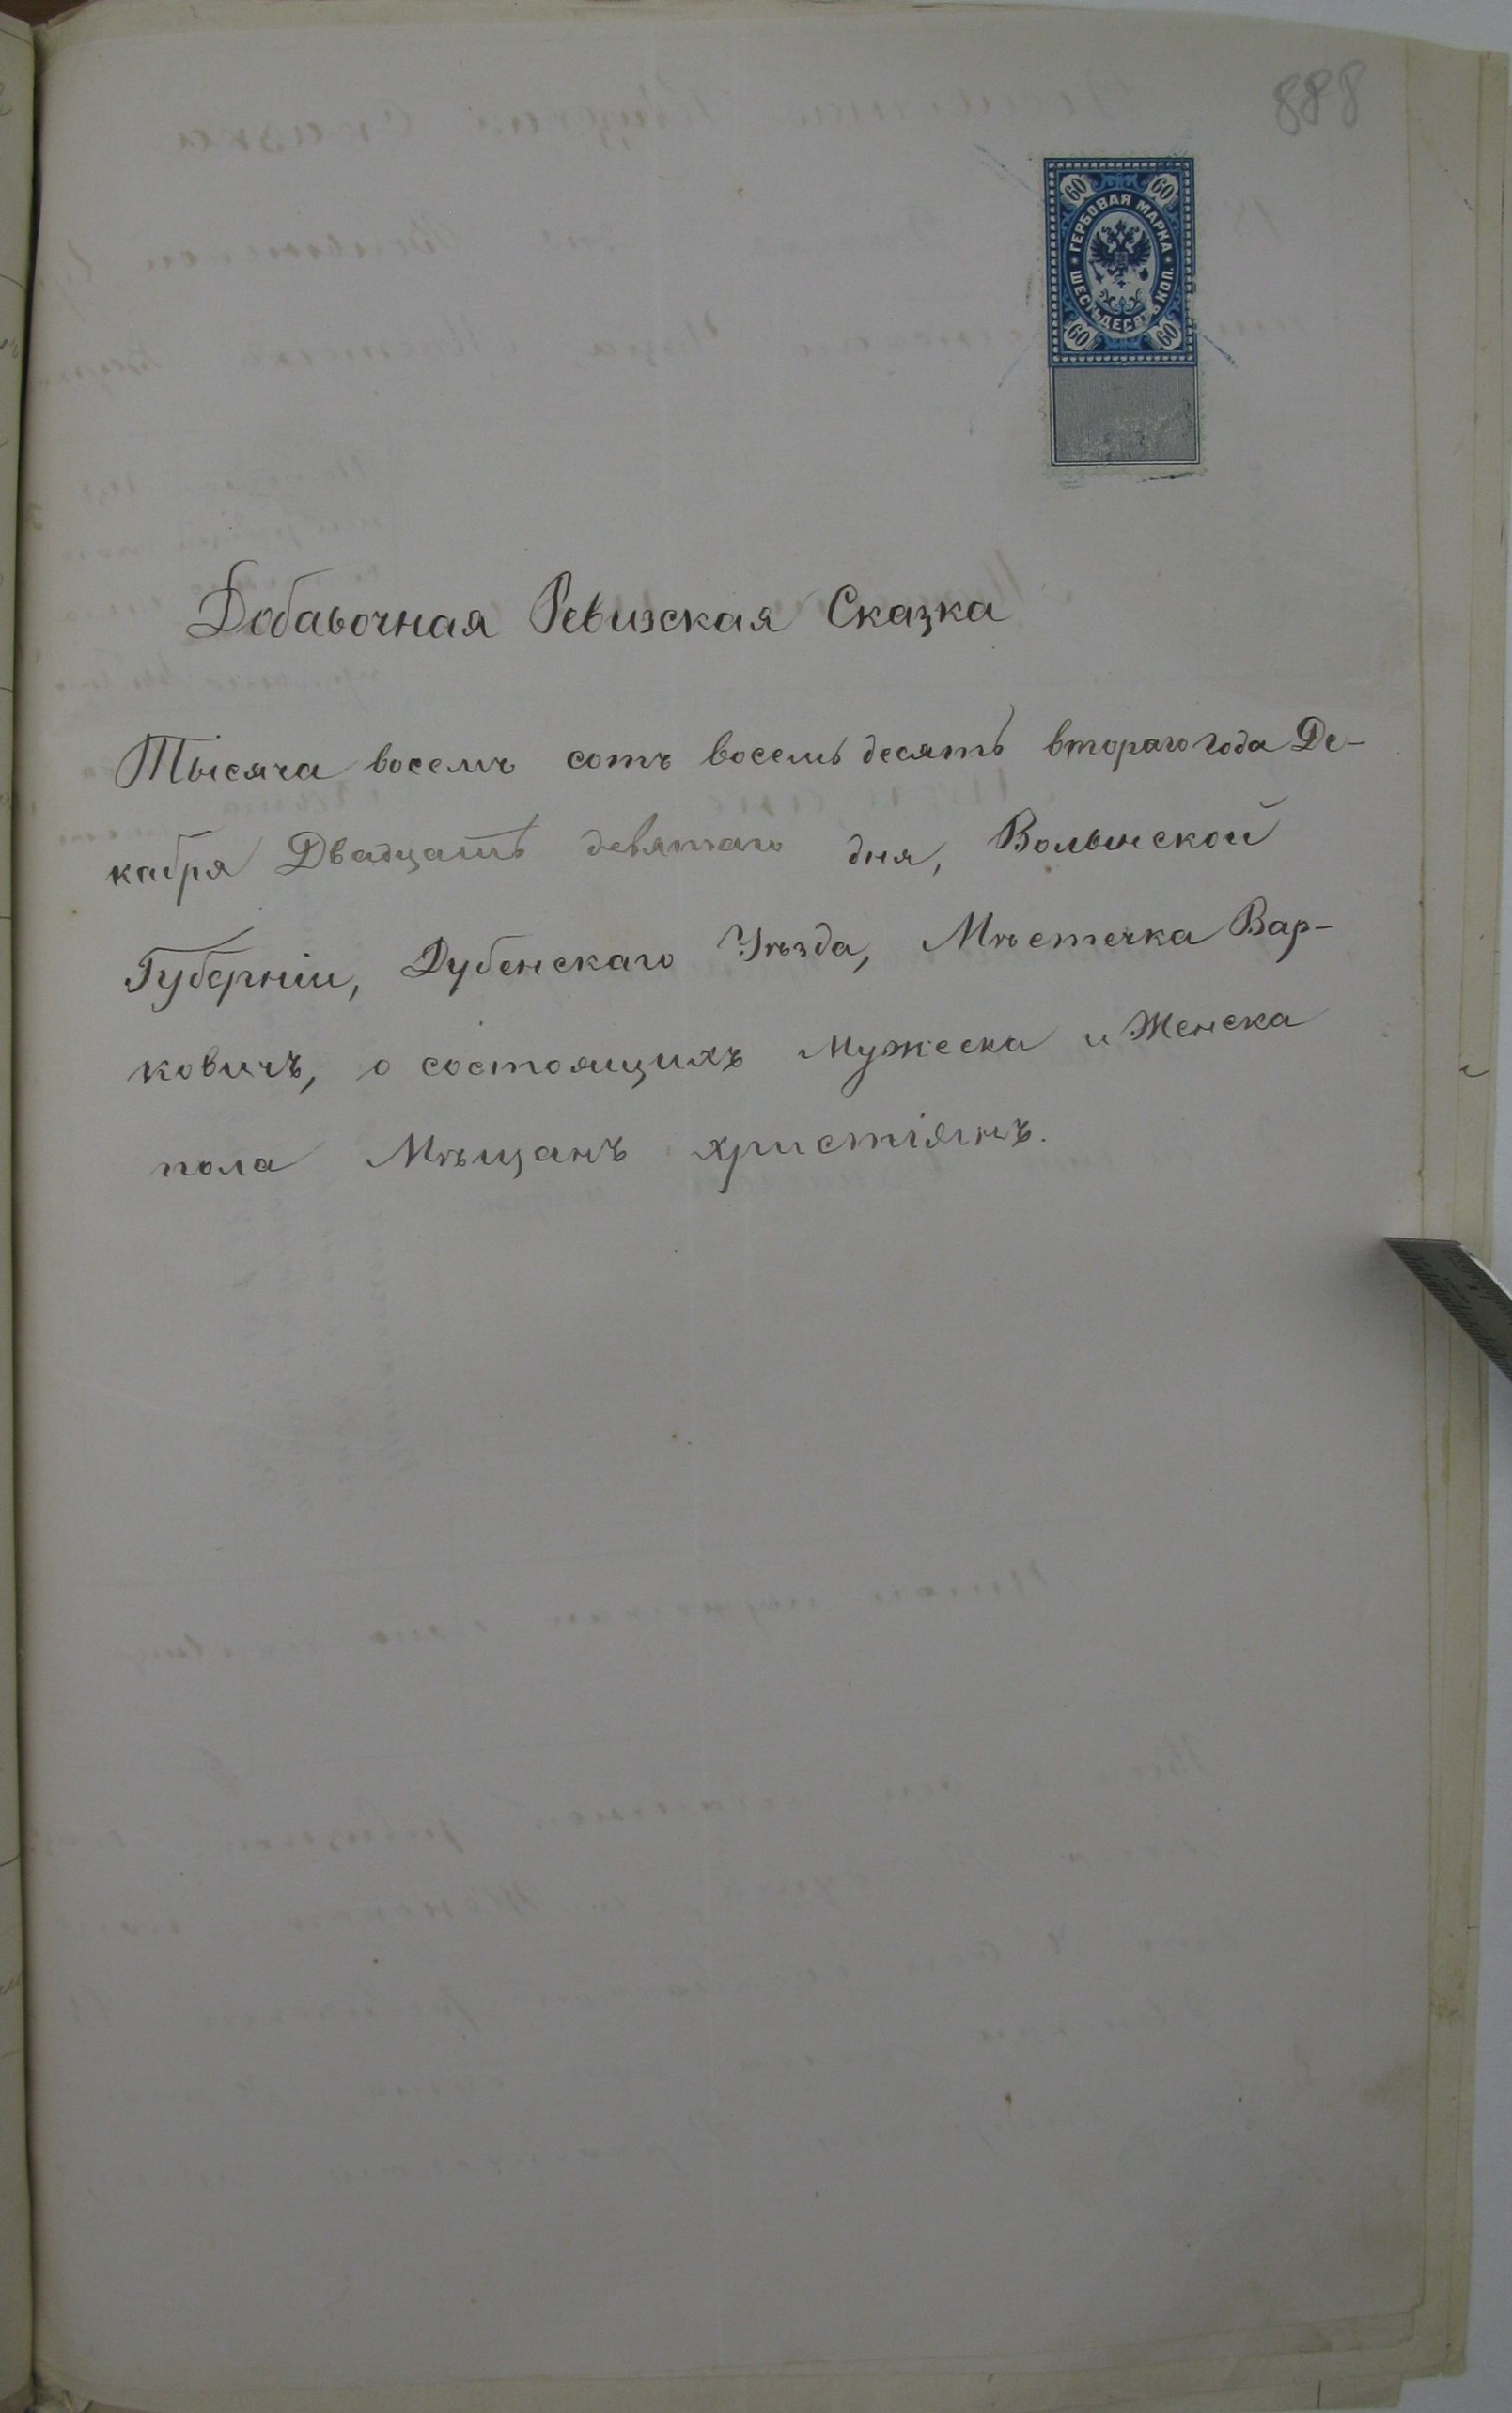 888
60 60
ГЕРБОВАЯ МАРКА
ШЕСТЬДЕСЯТЪ КОП.
60 60
Добавочная Ревизская Сказка
Тысяча восемъ сотъ восемь десять втораго года Де-
кабря Двадцать девятаго дня, Волынской
Губерніи, Дубенскаго Уѣзда, Мѣстечка Вар-
ковичъ, о состоящихъ Мужеска и Женска
пола Мѣщанъ христіянъ.